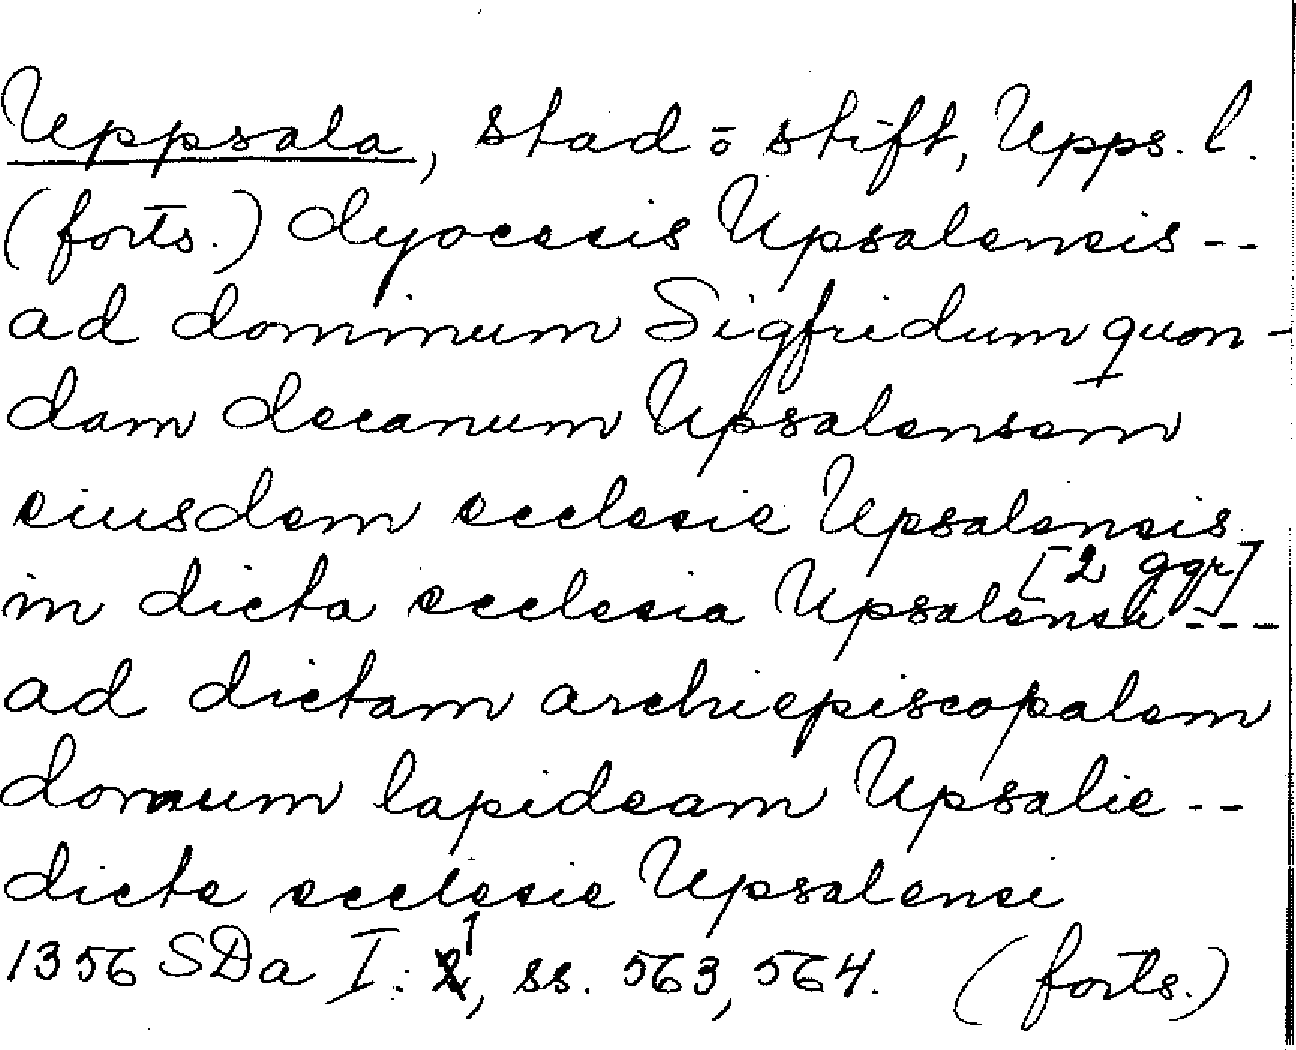 Uppsala, stad o. stift, Upps. l.
(forts.) dyocesis Upsalensis --
ad dominum Sigfridum quon-
dam decanum Upsalensem
eiusdem ecclesie Upsalensis
[2 ggr]
in dicta ecclesia Upsalensi ---
ad dictam archiepiscopalem
domum lapideam Upsalie --
dicte ecclesie Upsalensi
1356 SDa I: 1, ss. 563, 564. (forts.)